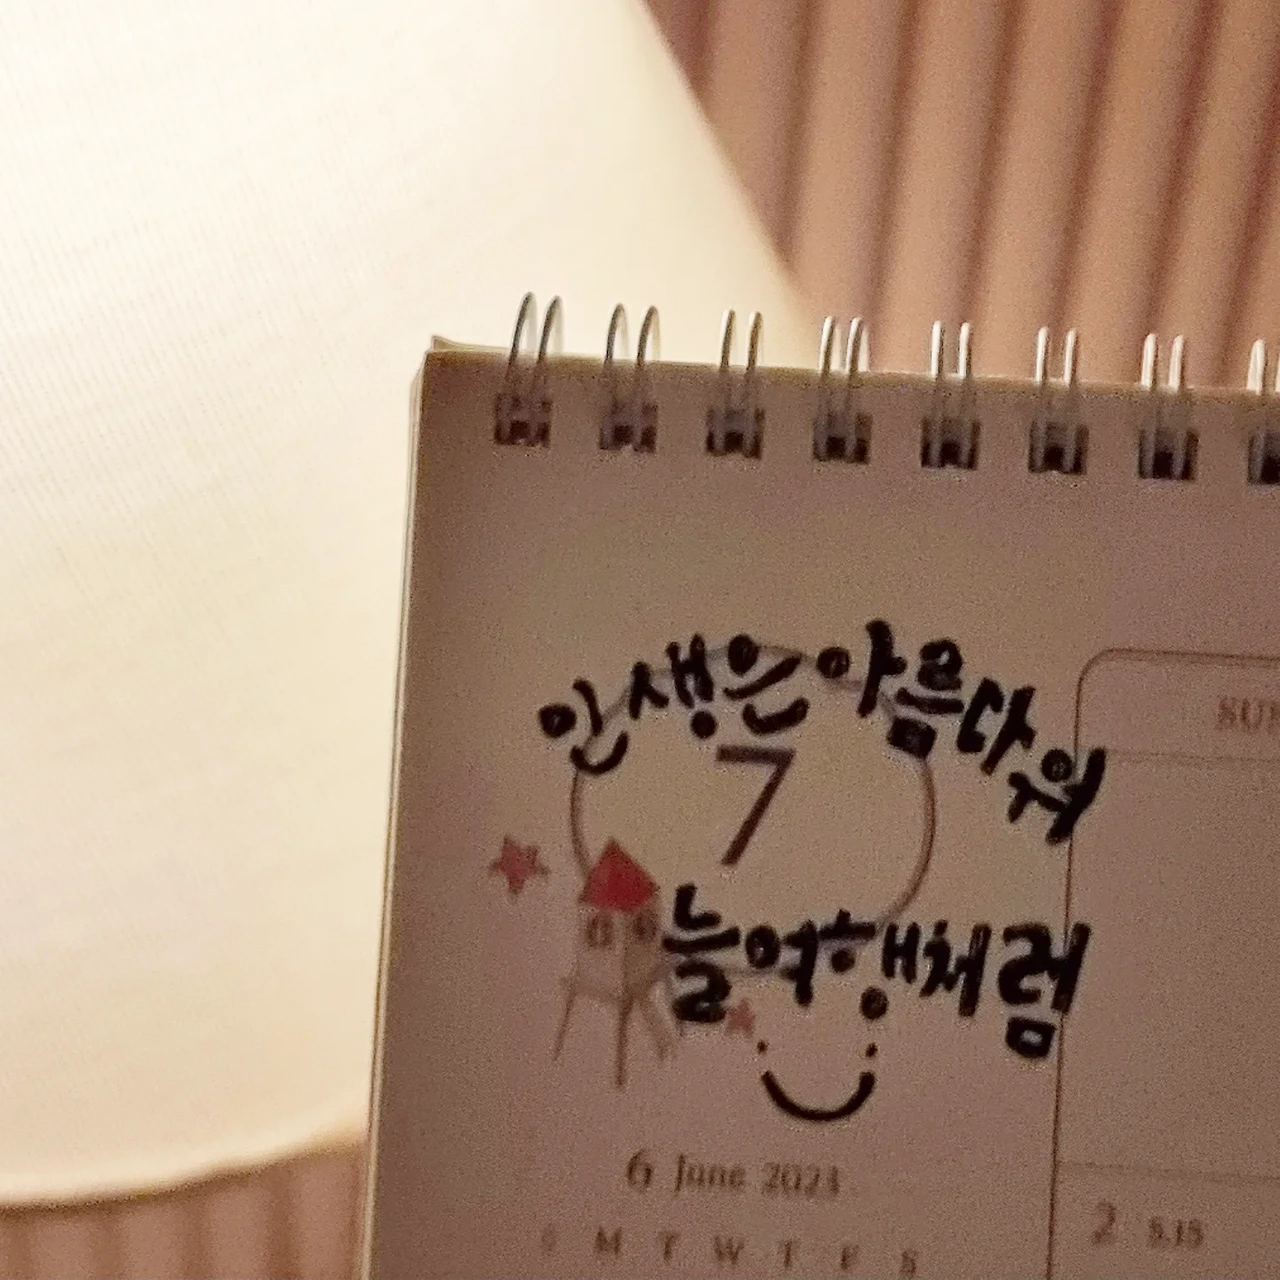 인생은 아름다워
7
늘 여행처럼
6 June 2023
M T W T F S
2 5.15